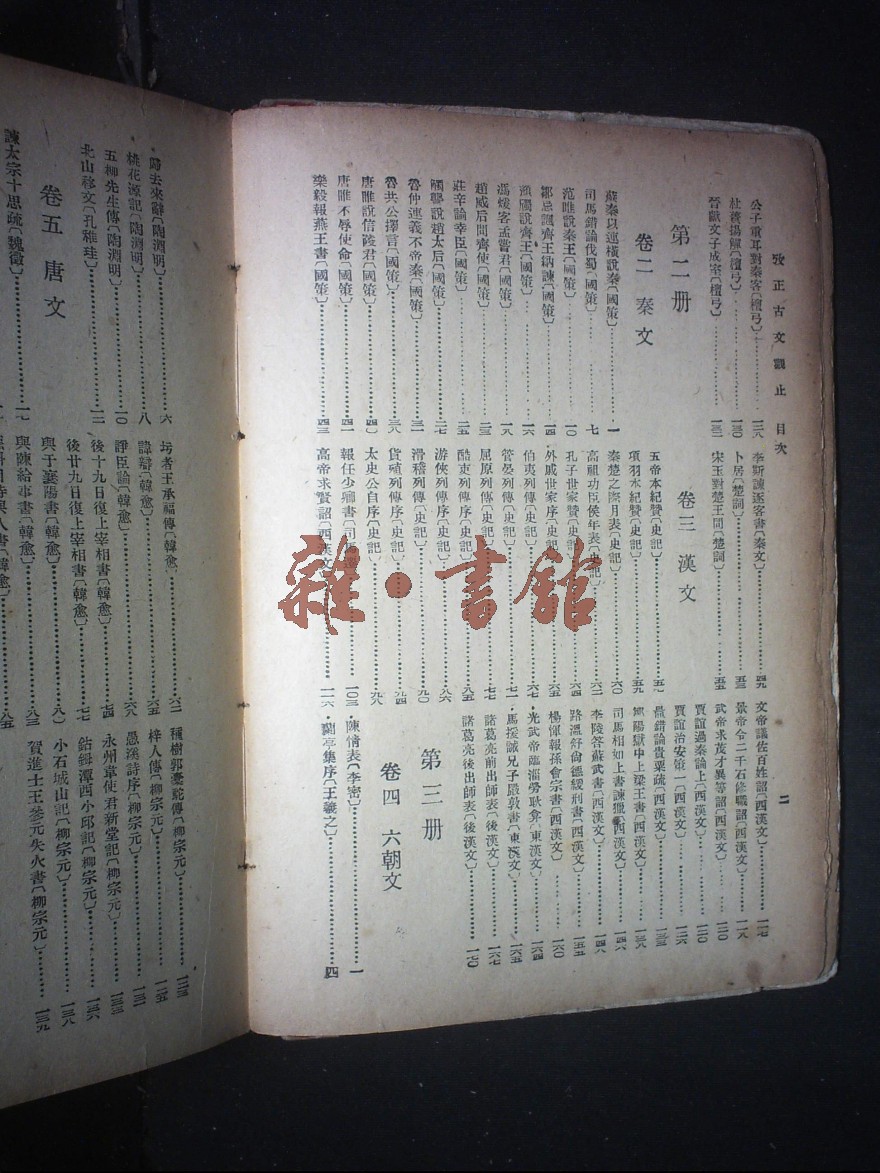 攷正古文觀止 目次
二
公子重耳對秦客〔檀弓〕…一二八
杜蕢揚觶〔檀弓〕…一三〇
晉獻文子成室〔檀弓〕…一三二
第二册
卷二 秦文
蘇秦以連橫說秦〔國策〕…一
司馬錯論伐蜀〔國策〕…七
范雎說秦王〔國策〕…一〇
鄒忌諷齊王納諫〔國策〕…一四
顏斶說齊王〔國策〕…一六
馮煖客孟嘗君〔國策〕…一八
趙威后問齊使〔國策〕…二三
莊辛論幸臣〔國策〕…二五
觸讋說趙太后〔國策〕…二八
魯仲連義不帝秦〔國策〕…三一
魯共公擇言〔國策〕…三八
唐雎說信陵君〔國策〕…四〇
唐雎不辱使命〔國策〕…四一
樂毅報燕王書〔國策〕…四三
李斯諫逐客書〔秦文〕…四九
卜居〔楚詞〕…五三
宋玉對楚王問〔楚詞〕…五五
卷三 漢文
五帝本紀贊〔史記〕…五七
項羽本紀贊〔史記〕…五九
秦楚之際月表〔史記〕…六〇
高祖功臣侯年表〔史記〕…六二
孔子世家贊〔史記〕…六四
外戚世家序〔史記〕…六五
伯夷列傳〔史記〕…六七
管晏列傳〔史記〕…七一
屈原列傳〔史記〕…七七
酷吏列傳序〔史記〕…八六
游俠列傳序〔史記〕…八八
滑稽列傳〔史記〕…九〇
貨殖列傳序〔史記〕…九四
太史公自序〔史記〕…九八
報任少卿書〔司馬遷〕…一〇三
高帝求賢詔〔西漢文〕…一一六
文帝議佐百姓詔〔西漢文〕…一一七
景帝令二千石修職詔〔西漢文〕…一一八
武帝求茂才異等詔〔西漢文〕…一二〇
賈誼過秦論上〔西漢文〕…一二〇
賈誼治安策一〔西漢文〕…一二六
鼂錯論貴粟疏〔西漢文〕…一三三
鄒陽獄中上梁王書〔西漢文〕…一三九
司馬相如上書諫獵〔西漢文〕…一四六
李陵答蘇武書〔西漢文〕…一四八
路溫舒尚德緩刑書〔西漢文〕…一五五
楊惲報孫會宗書〔西漢文〕…一六〇
光武帝臨淄勞耿弇〔東漢文〕…一六四
馬援誡兄子嚴敦書〔東漢文〕…一六五
諸葛亮前出師表〔後漢文〕…一六七
諸葛亮後出師表〔後漢文〕…一七〇
第三册
卷四 六朝文
陳情表〔李密〕…一
蘭亭集序〔王羲之〕…四
歸去來辭〔陶淵明〕…六
桃花源記〔陶淵明〕…八
五柳先生傳〔陶淵明〕…一〇
北山移文〔孔稚珪〕…一二
卷五 唐文
諫太宗十思疏〔魏徵〕…一七
圬者王承福傳〔韓愈〕…六二
諱辯〔韓愈〕…六五
諍臣論〔韓愈〕…六八
後十九日復上宰相書〔韓愈〕…七四
後廿九日復上宰相書〔韓愈〕…七七
與于襄陽書〔韓愈〕…八〇
與陳給事書〔韓愈〕…八三
種樹郭橐駝傳〔柳宗元〕…一二三
梓人傳〔柳宗元〕…一二五
愚溪詩序〔柳宗元〕…一三一
永州韋使君新堂記〔柳宗元〕…一三三
鈷鉧潭西小邱記〔柳宗元〕…一三六
小石城山記〔柳宗元〕…一三八
賀進士王參元失火書〔柳宗元〕…一三九
雜·書館